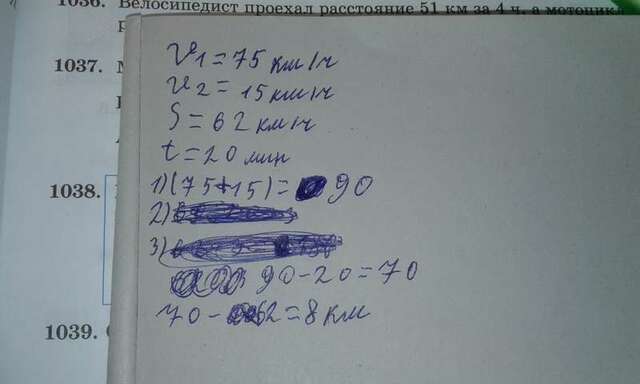 1036. Велосипедист проехал расстояние 51 км за 4 ч, а
1037.
1038.
1039.
V1=75 км/ч
V2=15 км/ч
S=62 км/ч
t=20 мин
1)(75+15)=90
2)
3)
90-20=70
70-62=8 км